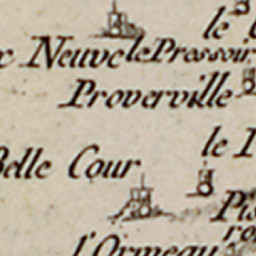 le
Neuve le Pressoir
Proverville
le
Belle Cour
l'Ormeau